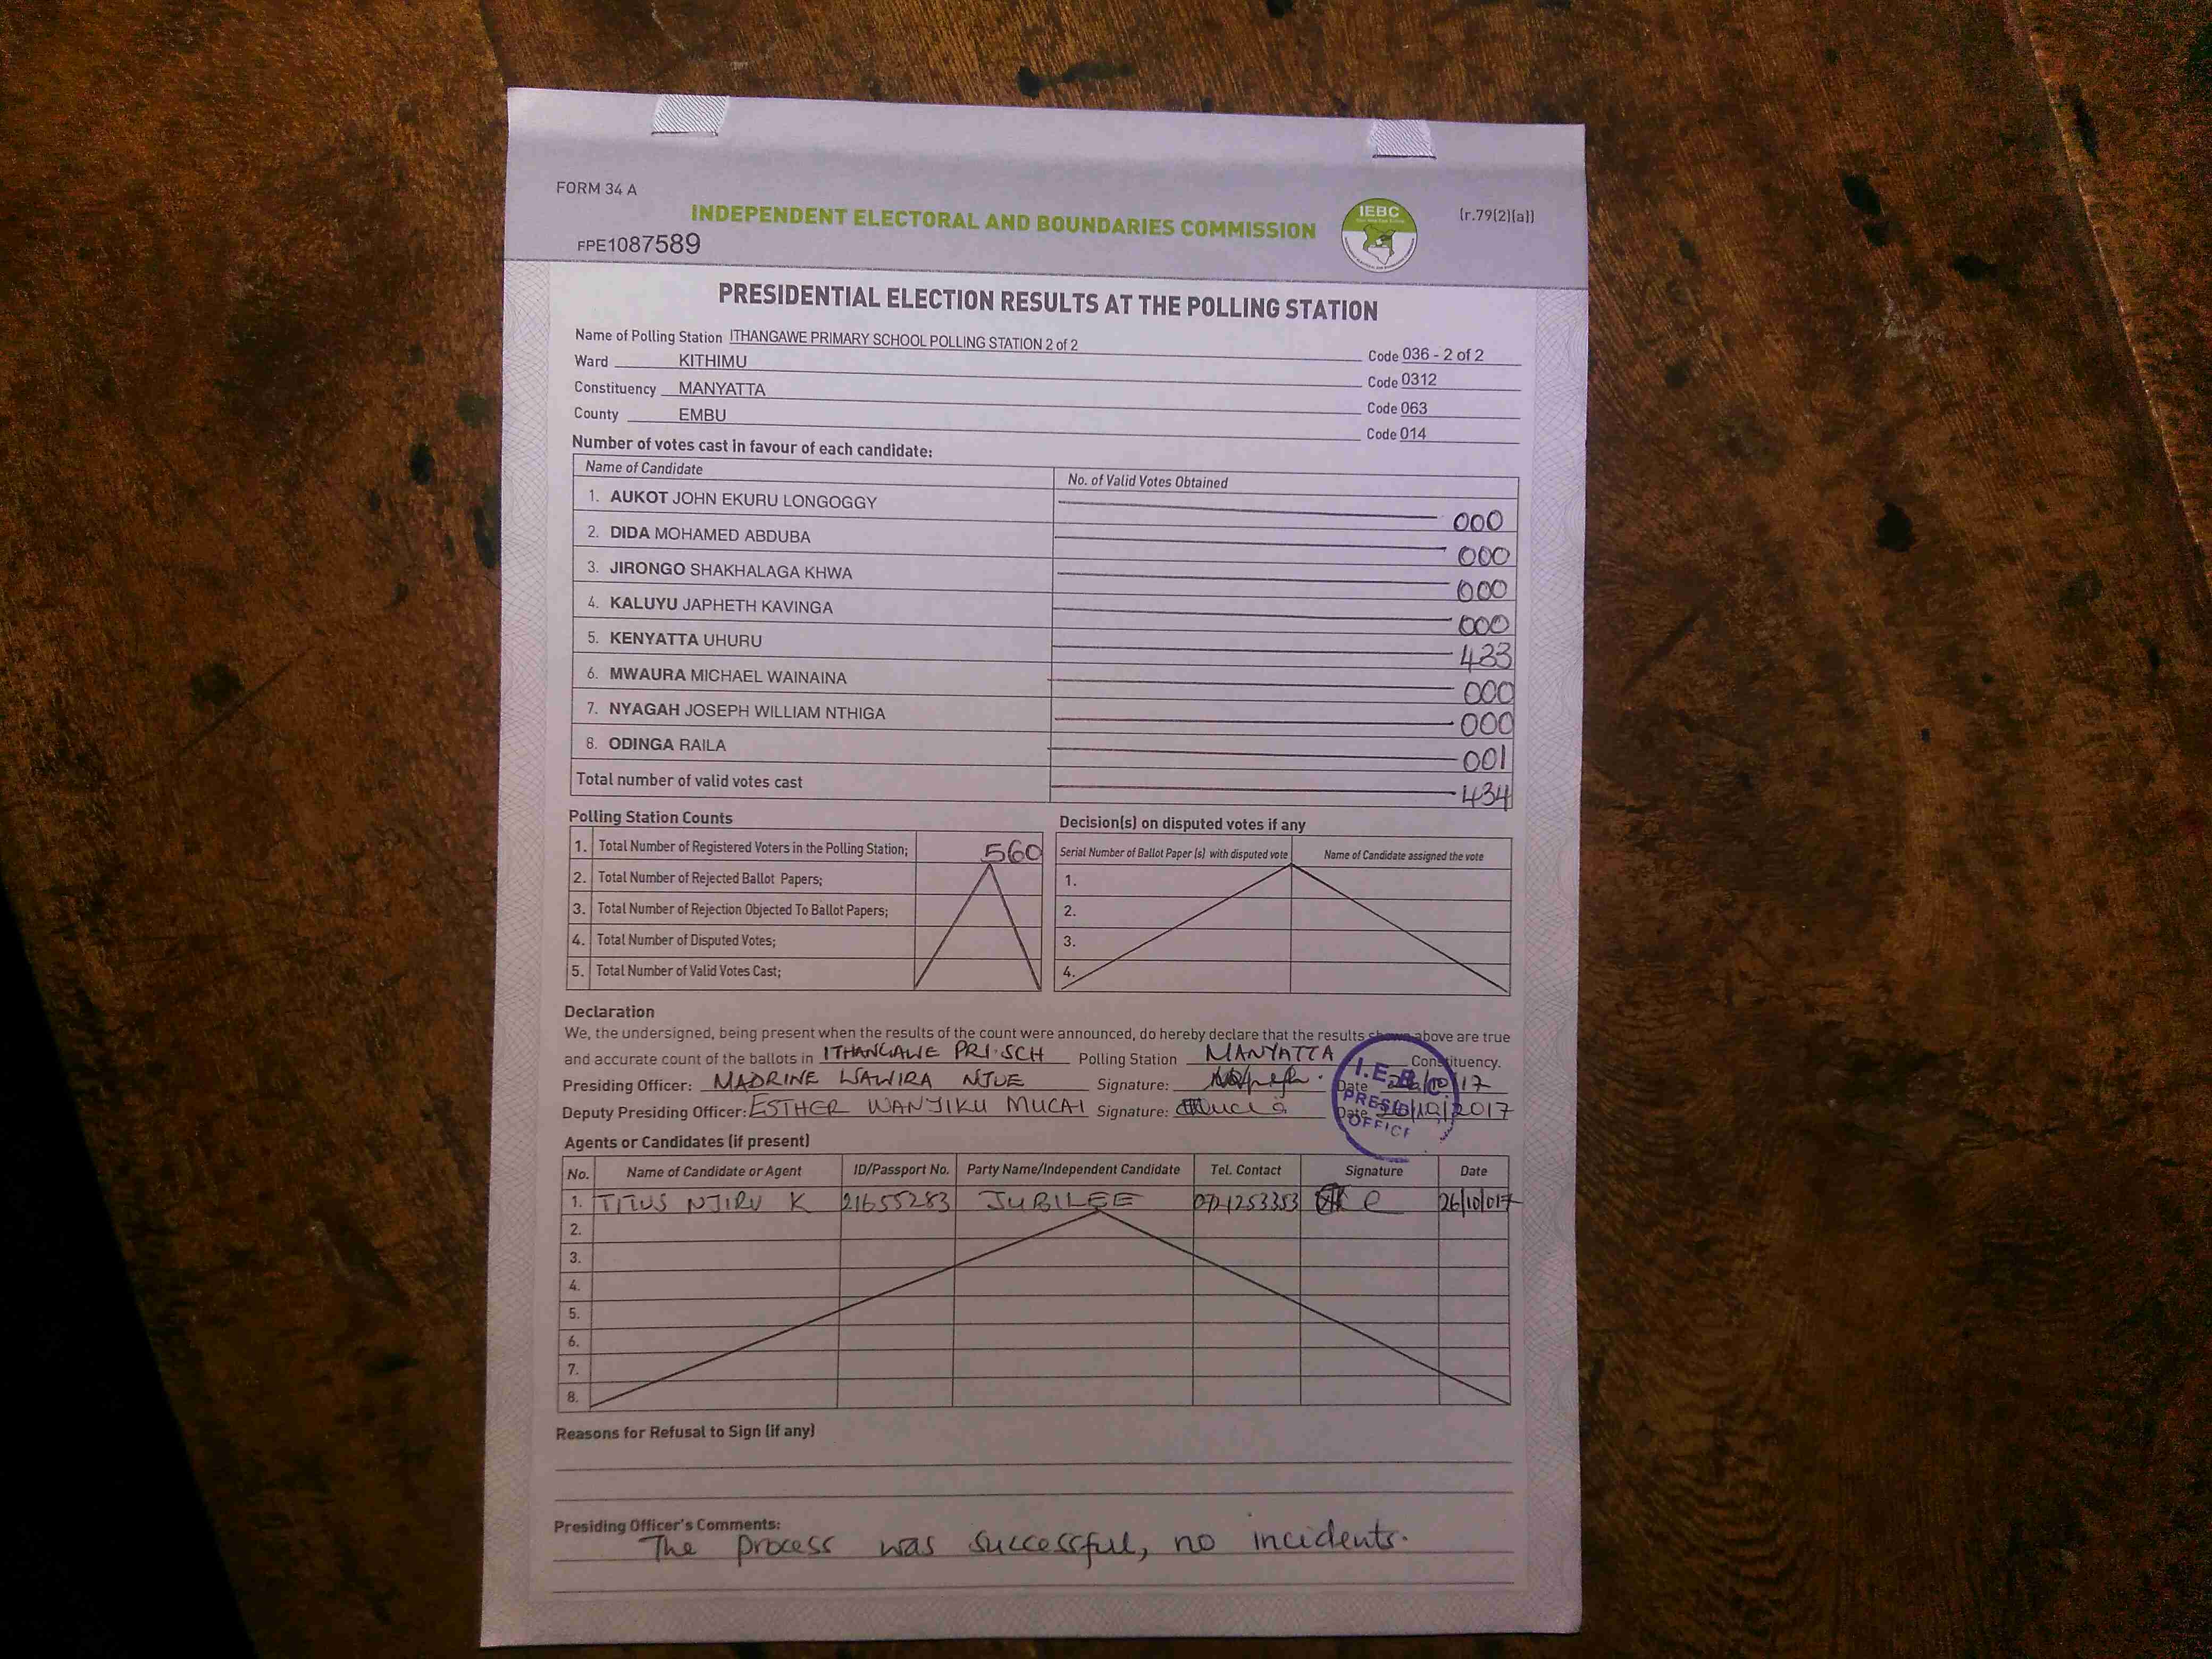 FORM 34 A
INDEPENDENT ELECTORAL AND BOUNDARIES COMMISSION
IEBC
(r.79(2)(a))
FPE1087589
PRESIDENTIAL ELECTION RESULTS AT THE POLLING STATION
Name of Polling Station ITHANGAWE PRIMARY SCHOOL POLLING STATION 2 of 2 Code 036 - 2 of 2
Ward KITHIMU Code 0312
Constituency MANYATTA Code 063
County EMBU Code 014
Number of votes cast in favour of each candidate:
Name of Candidate No. of Valid Votes Obtained
1. AUKOT JOHN EKURU LONGOGGY 000
2. DIDA MOHAMED ABDUBA 000
3. JIRONGO SHAKHALAGA KHWA 000
4. KALUYU JAPHETH KAVINGA 000
5. KENYATTA UHURU 433
6. MWAURA MICHAEL WAINAINA 000
7. NYAGAH JOSEPH WILLIAM NTHIGA 000
8. ODINGA RAILA 001
Total number of valid votes cast 434
Polling Station Counts
1. Total Number of Registered Voters in the Polling Station; 560
2. Total Number of Rejected Ballot Papers;
3. Total Number of Rejection Objected To Ballot Papers;
4. Total Number of Disputed Votes;
5. Total Number of Valid Votes Cast;
Decision(s) on disputed votes if any
Serial Number of Ballot Paper (s) with disputed vote Name of Candidate assigned the vote
1.
2.
3.
4.
Declaration
We, the undersigned, being present when the results of the count were announced, do hereby declare that the results shown above are true
and accurate count of the ballots in ITHANGAWE PRI.SCH Polling Station MANYATTA Constituency.
Presiding Officer: MADRINE WAWIRA NJUE Signature: Date 26/10/17
Deputy Presiding Officer: ESTHER WANJIKU MUCAI Signature: Date 26/10/2017
I.E.B.C.
PRESID
OFFICE
Agents or Candidates (if present)
No. Name of Candidate or Agent ID/Passport No. Party Name/Independent Candidate Tel. Contact Signature Date
1. TITUS NJIRU K 21655283 JUBILEE 0721253353 26/10/017
2.
3.
4.
5.
6.
7.
8.
Reasons for Refusal to Sign (if any)
Presiding Officer's Comments:
The process was successful, no incidents.